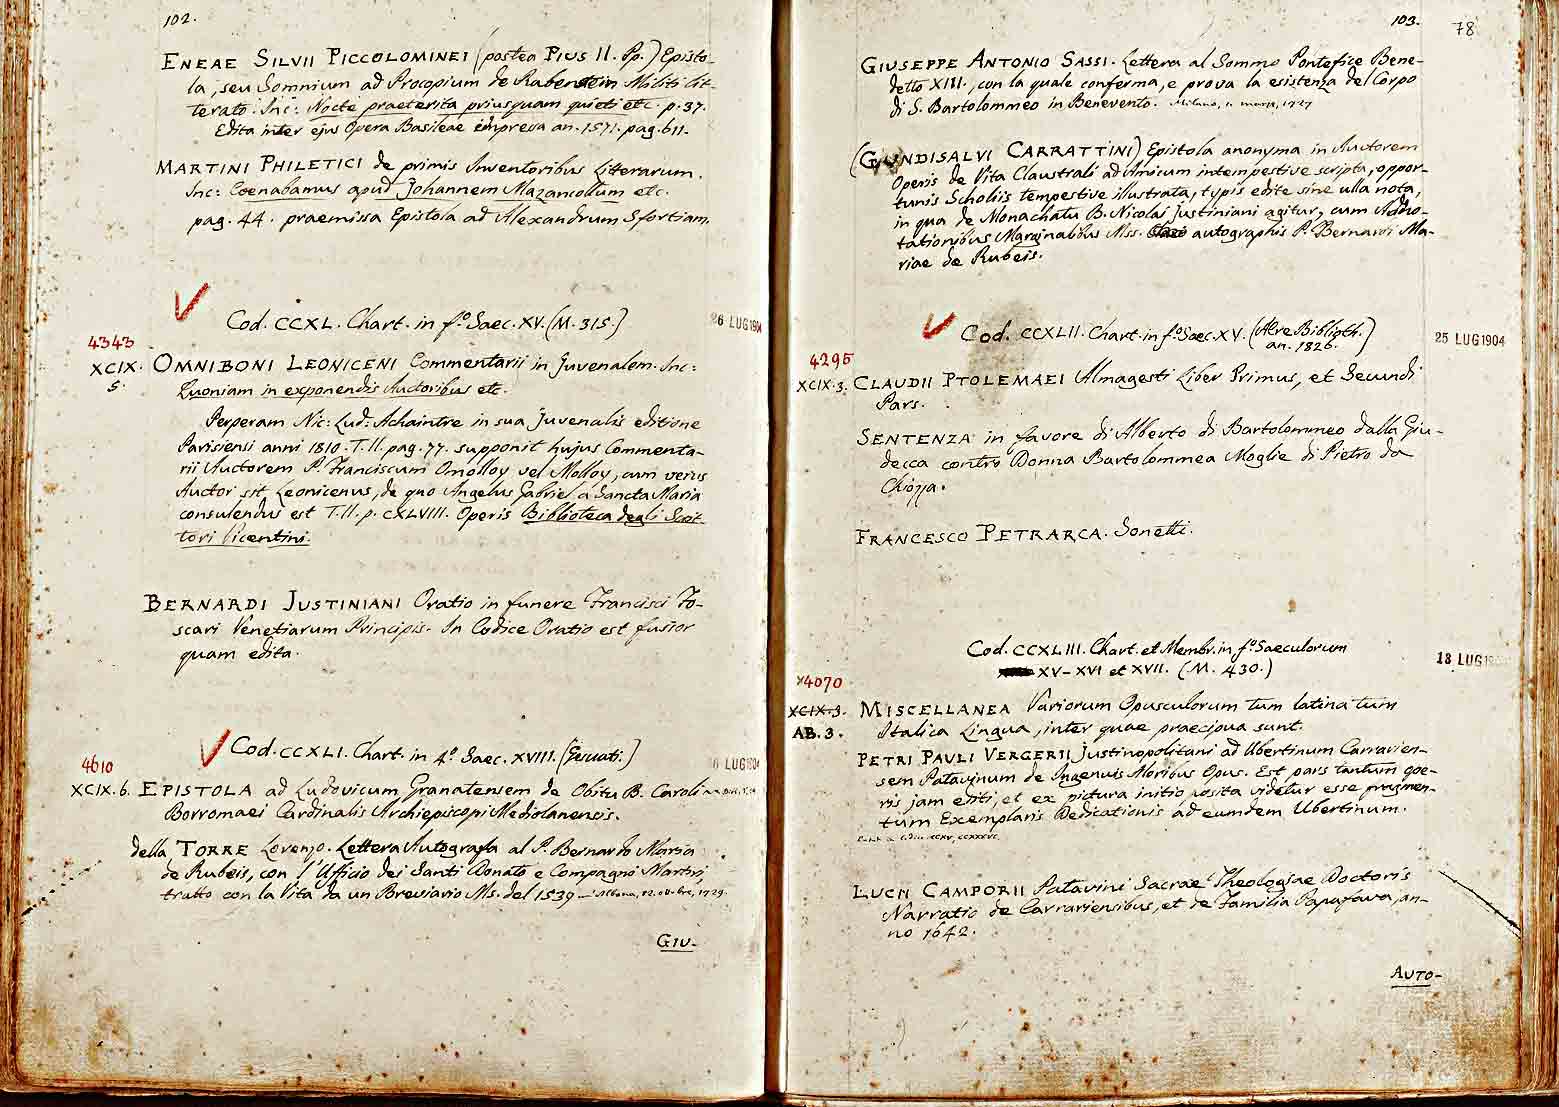 102.
ENEAE SILVII PICCOLOMINEI (postea PIUS II. Pp.) Episto-
la, seu Somnium ad Procopium de Rabenstein Militi lit-
terato. Inc: Nocte praeterita priusquam quieti etc. p. 37.
Edita inter ejus Opera Basileae impressa an. 1571. pag. 611.
MARTINI PHILETICI de primis Inventoribus Litterarum.
Inc: Coenabamus apud Johannem Mazancollum etc.
pag. 44. praemissa Epistola ad Alexandrum Sfortiam.
Cod. CCXL. Chart. in fº. Saec. XV. (M. 315.)
26 LUG 1904
4343
XCIX. OMNIBONI LEONICENI Commentarii in Juvenalem. Inc:
5. Quoniam in exponendis Auctoribus etc.
Perperam Nic: Lud: Achaintre in sua Juvenalis editione
Parisiensi anni 1810. T. II. pag. 77. supponit hujus Commenta-
rii Auctorem P. Franciscum Omolloy vel Molloy, cum verus
Auctor sit Leonicenus, de quo Angelus Gabriel a Sancta Maria
consulendus est T. II. p. CXLVIII. Operis Biblioteca degli Scrit-
tori Vicentini.
BERNARDI JUSTINIANI Oratio in funere Francisci Fo-
scari Venetiarum Principis. In Codice Oratio est fusior
quam edita.
Cod. CCXLI. Chart. in 4º. Saec. XVIII. (Gesuati.)
LUG 1904
4610
XCIX. 6. EPISTOLA ad Ludovicum Granatensem de Obitu B. Caroli
Borromaei Cardinalis Archiepiscopi Mediolanensis.
della TORRE Lorenzo. Lettera Autografa al P. Bernardo Maria
de Rubeis, con l'Ufficio dei Santi Donato e Compagni Martiri,
tratto con la Vita da un Breviario Ms. del 1539 — 1729.
GIU-
103.
78
GIUSEPPE ANTONIO SASSI. Lettera al Sommo Pontefice Bene-
detto XIII. con la quale conferma, e prova la esistenza del Corpo
di S. Bartolommeo in Benevento. Milano, 1727
(GUNDISALVI CARRATTINI) Epistola anonyma in Auctorem
Operis de Vita Claustrali ad Amicum intempestive scripta, oppor-
tunis Scholiis tempestive illustrata, typis edite sine ulla nota,
in qua de Monachatu B. Nicolai Justiniani agitur, cum Adno-
tationibus Marginalibus Mss. autographis P. Bernardi Ma-
riae de Rubeis.
Cod. CCXLII. Chart. in fº. Saec. XV. (Alre Biblioth.
an. 1826.)
25 LUG 1904
4295
XCIX. 3. CLAUDII PTOLEMAEI Almagesti Liber Primus, et Secundi
Pars.
SENTENZA in favore di Alberto di Bartolommeo dalla Giu-
decca contro Donna Bartolommea Moglie di Pietro da
Chiozza.
FRANCESCO PETRARCA. Sonetti.
Cod. CCXLIII. Chart. et Membr. in fº. Saeculorum
XV-XVI et XVII. (M. 430.)
18 LUG
4070
XCIX. 3. MISCELLANEA Variorum Opusculorum tum latina tum
AB. 3. Italica Lingua, inter quae praecipua sunt.
PETRI PAULI VERGERII Justinopolitani ad Ubertinum Carrarien-
sem Patavinum de Ingenuis Moribus Opus. Est pars tantum ope-
ris jam editi, et ex pictura initio posita videtur esse fragmen-
tum Exemplaris Dedicationis ad eumdem Ubertinum.
LUCAE CAMPORII Patavini Sacrae Theologiae Doctoris
Narratio de Carrariensibus, et de Familia Papafava, an-
no 1642.
AUTO-